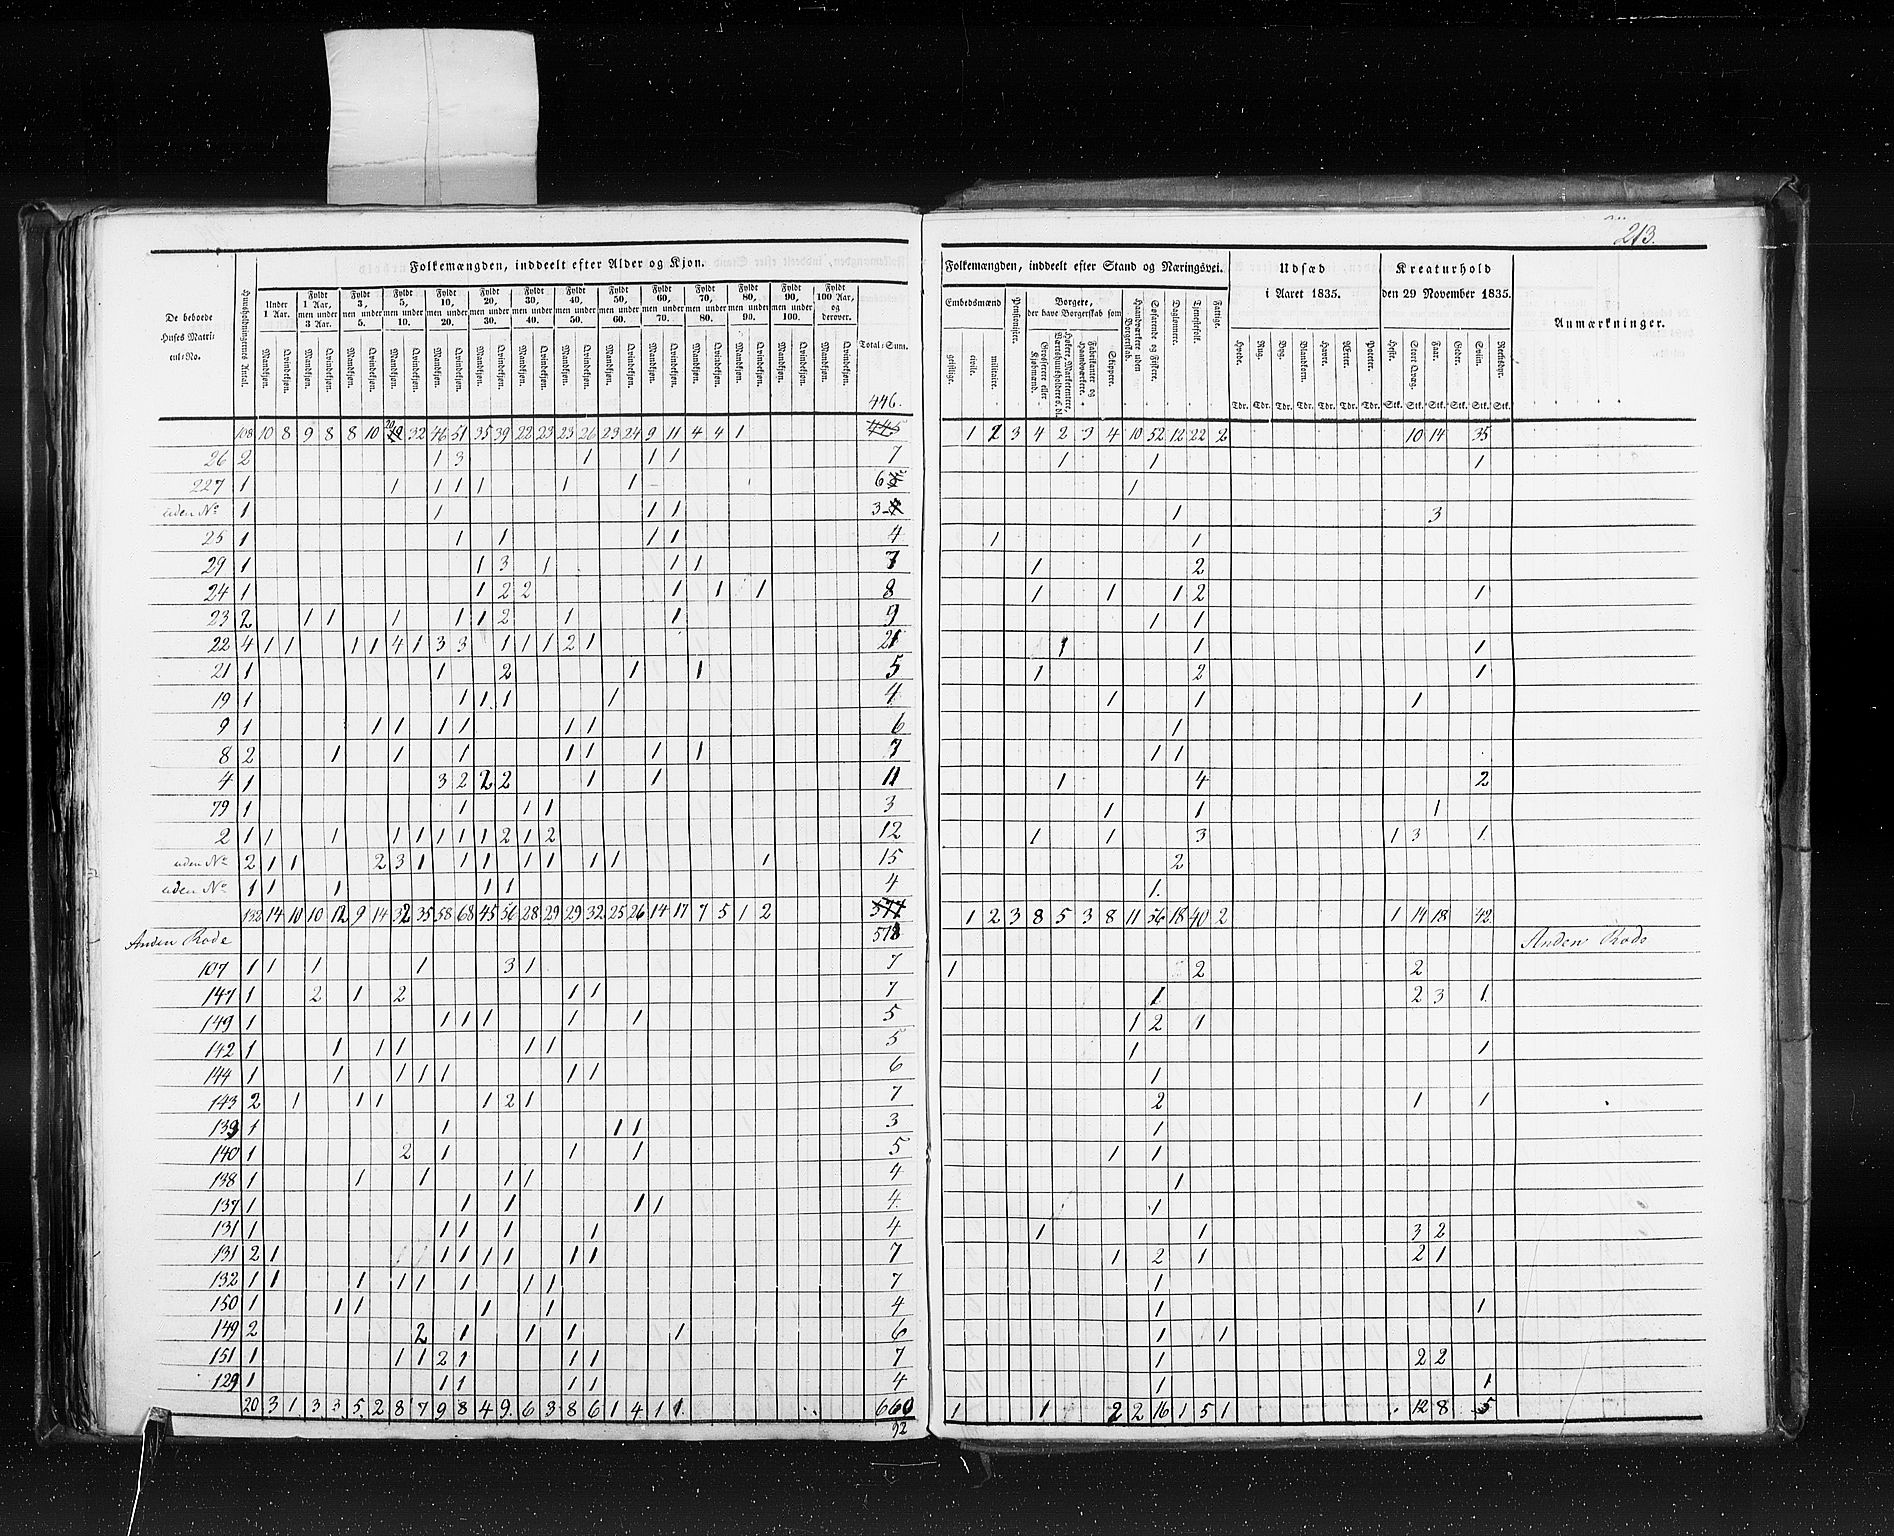 213.
Folkemængden, inddeelt efter Alder og Kjøn.
De beboede Huses Matrikul-No.
Huusholdningernes Antal.
Under 1 Aar.
Fyldt 1 Aar, men under 3 Aar.
Fyldt 3, men under 5.
Fyldt 5, men under 10.
Fyldt 10, men under 20.
Fyldt 20, men under 30.
Fyldt 30, men under 40.
Fyldt 40, men under 50.
Fyldt 50, men under 60.
Fyldt 60, men under 70.
Fyldt 70, men under 80.
Fyldt 80, men under 90.
Fyldt 90, men under 100.
Fyldt 100 Aar, og derover.
Mandkjøn. Qvindekjøn.
Total-Sum.
Folkemængden, inddeelt efter Stand og Næringsvei.
Embedsmænd
geistlige. civile. militaire.
Pensionister.
Borgere, der have Borgerskab som
Grosserere eller Kjøbmænd.
Høkere, Marketentere, Værtshuusholdere o. dl.
Fabrikanter og Haandværkere.
Skippere.
Haandværkere uden Borgerskab.
Søfarende og Fiskere.
Daglønnere.
Tjenestefolk.
Fattige.
Udsæd i Aaret 1835.
Hvede. Rug. Byg. Blandkorn. Havre. Ærter. Poteter.
Tdr. Tdr. Tdr. Tdr. Tdr. Tdr. Tdr.
Kreaturhold den 29 November 1835.
Heste. Stort Qvæg. Faar. Geder. Sviin. Reensdyr.
Stk. Stk. Stk. Stk. Stk. Stk.
Anmærkninger.
446.
108 10 8 9 8 8 10 20 32 46 51 35 39 22 23 23 26 23 24 9 11 4 4 1 445 1 2 3 4 2 3 4 10 52 12 22 2 10 14 35
26 2 1 3 1 1 1 7 1 1 1
227 1 1 1 1 1 1 1 6 1
uden No 1 1 1 1 3 1 3
25 1 1 1 1 1 4 1 1
29 1 1 3 1 1 1 7 1 2
24 1 1 2 2 1 1 1 8 1 1 1 2 1
23 2 1 1 1 1 1 2 1 1 9 1 1
22 4 1 1 1 1 4 1 3 3 1 1 1 2 1 21 1 1 1
21 1 1 2 1 1 5 1 2 1
19 1 1 1 1 1 4 1 1 1
9 1 1 1 1 1 1 1 6 1
8 2 1 1 1 1 1 1 1 7 1 1
4 1 3 2 2 2 1 1 11 1 4 2
79 1 1 1 1 3 1 1 1
2 1 1 1 1 1 1 1 1 2 1 2 12 1 1 3 1 3 1
uden No 2 1 1 2 3 1 1 1 1 1 1 1 1 15 2
uden No 1 1 1 1 1 4 1.
132 14 10 10 12 9 14 32 35 58 68 45 56 28 29 29 32 25 26 14 17 7 5 1 2 577 1 2 3 8 5 3 8 11 56 18 40 2 1 14 18 42
Anden Rode 578 Anden Rode
107 1 1 1 1 3 1 7 1 2 2
147 1 2 1 2 1 1 7 1 2 3 1
149 1 1 1 1 1 1 5 1 2 1
142 1 1 1 1 1 1 5 1 1
144 1 1 1 1 1 1 1 6 1
143 2 1 1 1 1 2 1 7 2 1 1
139 1 1 1 1 3 1
140 1 2 1 1 1 5 1 1
138 1 1 1 1 1 4 1
137 1 1 1 1 1 4 1
131 1 1 1 1 1 4 1 1 3 2
131 2 1 1 1 1 1 1 1 7 1 2 1 2 1
132 1 1 1 1 1 1 1 1 7 1
150 1 1 1 1 1 4 1 1
149 2 2 1 1 1 1 6 1 1
151 1 1 1 2 1 1 1 7 1 2 2
129 1 1 1 1 1 4 1 1
20 3 1 3 3 5 2 8 7 9 8 4 9 6 3 8 6 1 4 1 1 1 1 2 2 16 1 5 1 12 8 5
92